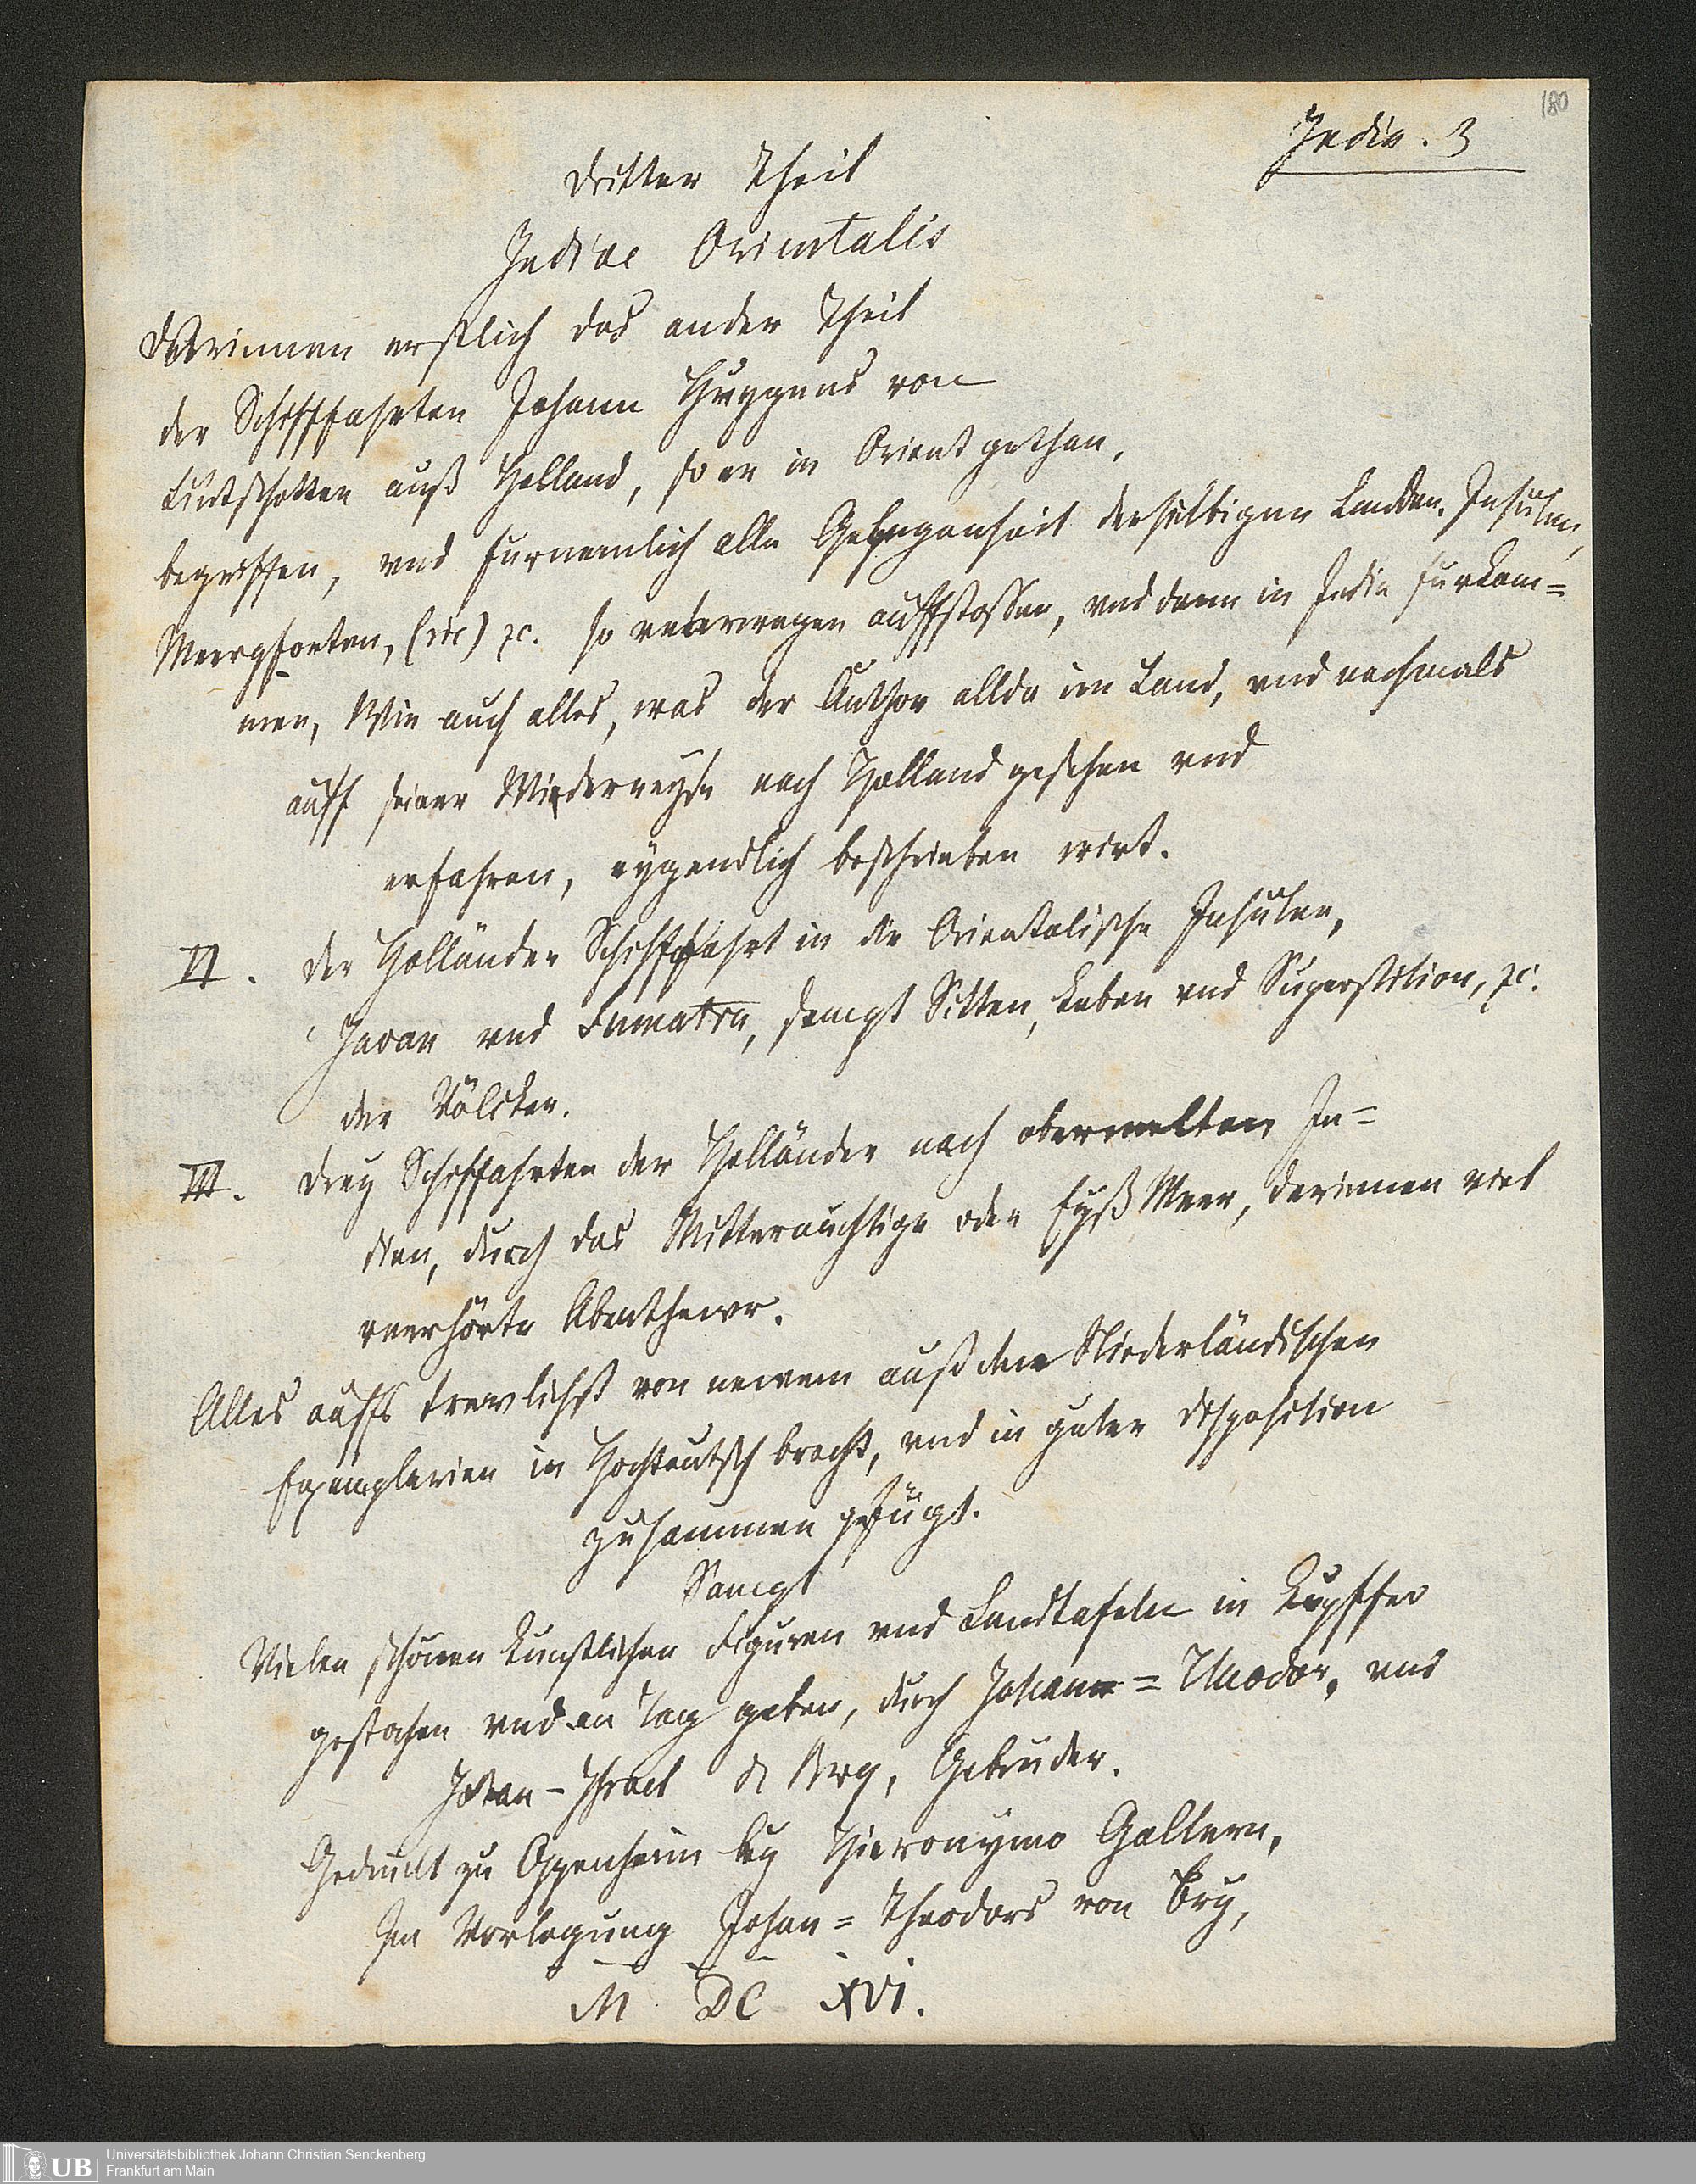 180
India. 3
Dritter Theil
Indiae Orientalis
Darinnen erstlich das ander Theil
der Schifffahrten Johann Huygens von
Lintschotten auß Holland, so er in Orient gethan,
begriffen, vnd furnemlich alle Gelegenheit derselbigen Landen, Insulen,
Meerpforten, (sic) ꝛc. so vnterwegen auffstossen, vnd dann in India furkom=
men, Wie auch alles, was der Author allda im Land, vnd nachmals
auff seiner Wiederreyse nach Holland gesehen vnd
erfahren, eygendlich beschrieben wirt.
II. Der Holländer Schifffahrt in die Orientalische Insulen,
Javan vnd Sumatra, sampt Sitten, Leben vnd Superstition, ꝛc.
der Völcker.
III. Drey Schiffahrten der Holländer nach obermelten In=
dien, durch das Mitternächtige oder Eyß Meer, darinnen viel
vnerhörte Abenthewr.
Alles auffs trewlichst von newem auß dem Niederländischen
Exemplarien in Hochteutsch bracht, vnd in guter disposition
zusammen gefügt.
Sampt
Vielen schönen kunstlichen Figuren vnd Landtafeln in Kupffer
gestochen vnd an Tag geben, durch Johann = Theodor, vnd
Johan - Israel de Bry, Gebrüder.
Gedruckt zu Oppenheim bey Hieronymo Gallern,
In Verlegung Johan = Theodors von Bry,
M DC XVI.
UB Universitätsbibliothek Johann Christian Senckenberg
Frankfurt am Main